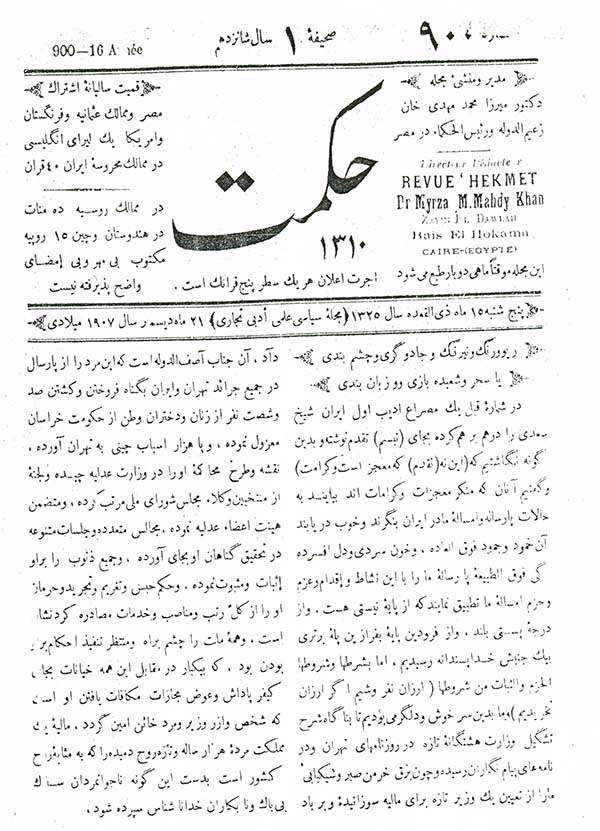 900-16 A née
صحیفهٔ ۱ سال شانزدهم
۹۰۰
مدیر ومنشئ مجله
دکتور میرزا محمد مهدی خان
زعیم الدوله ورئیس الحکماء در مصر
Directeur Rédacteur
REVUE 'HEKMET
Dr Myrza M. Mahdy Khan
ZAIM EL DAWLAH
Rais El Hokama
CAIRE-(EGYPTE)
این مجله موقتاً ماهی دوبار طبع می شود
حکمت
۱۳۱۰
اجرت اعلان هر یک سطر پنج فرانک است .
قمیت سالیانهٔ اشتراك
مصر وممالك عثمانیه وفرنگستان
وامریکا یك لیرای انگلیسی
در ممالك محروسهٔ ایران ۴۰ قران
در ممالك روسیه ده منات
در هندوستان وچین ۱۵ روپیه
مکتوب بی مهر وبی إمضای
واضح پذیرفته نیست
پنج شنبه ۱۵ ماه ذی القعده سال ۱۳۲۵ (مجلهٔ سیاسی علمی أدبی تجاری) ۲۱ ماه دیسمبر سال ۱۹۰۷ میلادی
ریو ورنك ونیرنك وجادوگری وچشم بندی
یا سحر وشعبده بازی ووزبان بندی
در شمارهٔ قبل یك مصراع ادیب اول ایران شیخ
سعدی را درهم برهم کرده بجای (تبسم) تقدم نوشته وبدین
گونه نگاشتیم که (این نه (تقدم) که معجز است وکرامت)
وگفتیم آنان که منکر معجزات وکرامات اند بیایند به
حالات پارساله وامسالهٔ مادر ایران بنگرند وخوب دریابند
آن خمود وجمود فوق العاده ، وخون سردی ودل افسرده
گی فوق الطبیعهٔ پارسالهٔ ما را با این نشاط وإقدام وعزم
وحزم امسالهٔ ما تطبیق نمایند که از پایهٔ نیستی هست . واز
درجهٔ پستی بلند ، واز فرودین پایهٔ بفرازین پلهٔ برتری
بیك جنبش خداپسندانه رسیدیم ، اما بشرطها وشروطها
الحزم والثبات من شروطها ( ارزان نفر وشیم اگر ارزان
نخریدیم ) وما بدین سر خوش ودلگرمی بودیم تا بناگاه شرح
تشگیل وزارت هشتگانهٔ تازه در روزنامهای تهران ودر
نامه های پیام نگاران رسیده وچون برق خرمن صبر وشیکبائی
مارا از تعیین یك وزیر تازه برای مالیه سوزانید و بر باد
دآد ، آن جناب آصف الدوله است که این مرد را از پارسال
در جمیع جرائد تهران وایران بگناه فروختن وکشتن صد
وشصت نفر از زنان ودختران وطن از حکومت خراسان
معزول نموده ، وبا هزار اسباب چینی به تهران آورده ،
نقشه وطرح محاکهٔ او را در وزارت عدلیه چیده ولجنهٔ
از منتخبین وکلاء مجلس شورای ملی مرتب کرده ، ومتضمن
هیئت اعضاء عدلیه نموده ، مجالس متعدده وجلسات متنوعه
در تحقیق گناهان او بجای آورده ، وجمیع ذنوب را براو
إثبات ومثبوت نموده ، وحکم حبس وتغریم وتجرید وحرمان
او را از کل رتب ومناصب وخدمات مصادره کردند
است ، وهمهٔ ملت را چشم براه ومنتظر تنفیذ احکام
بودن بود ، که بیکبار در مقابل این همه خیانات بجای
کیفر پاداش وعوض مجازات مکافات یافتن او است
که شخص وازر وزیر ومرد خائن امین گردد ، مالیهٔ یك
مملکت مردهٔ هزار ساله وتازه روح دمیده را که به مثابهٔ روح
کشور است بدست این گونه ناجوانمردان سفاك
بی باك ونا بکاران خدا نا شناس سپرده شود .